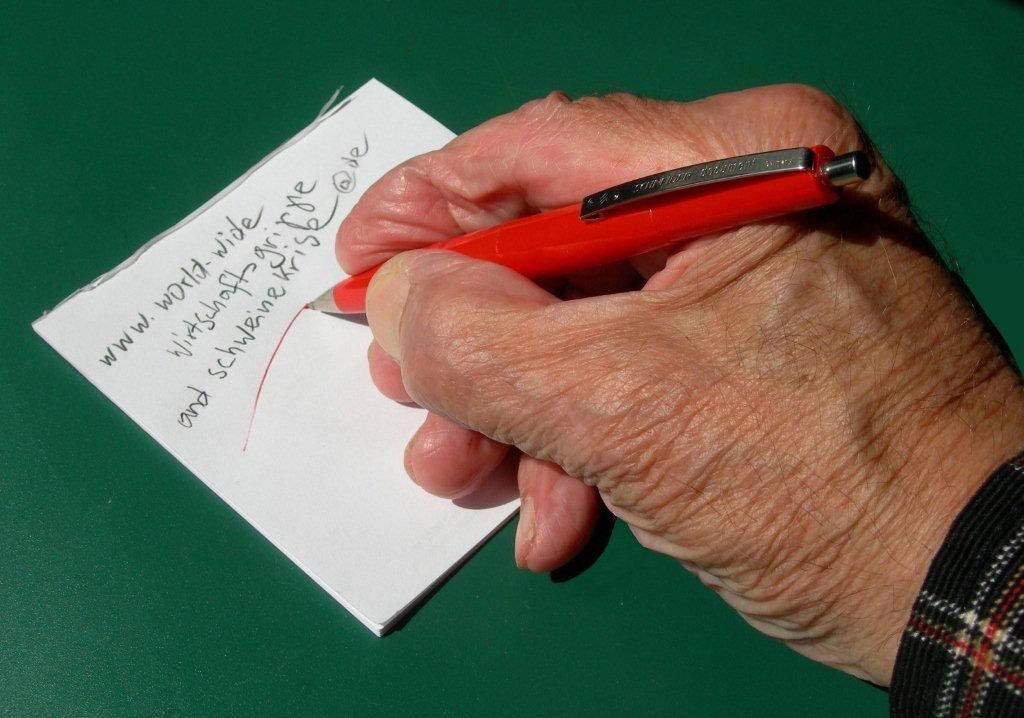 www.world.wide
wirtschaftsgrippe
and schweinekrise @de
SCHNEIDER document